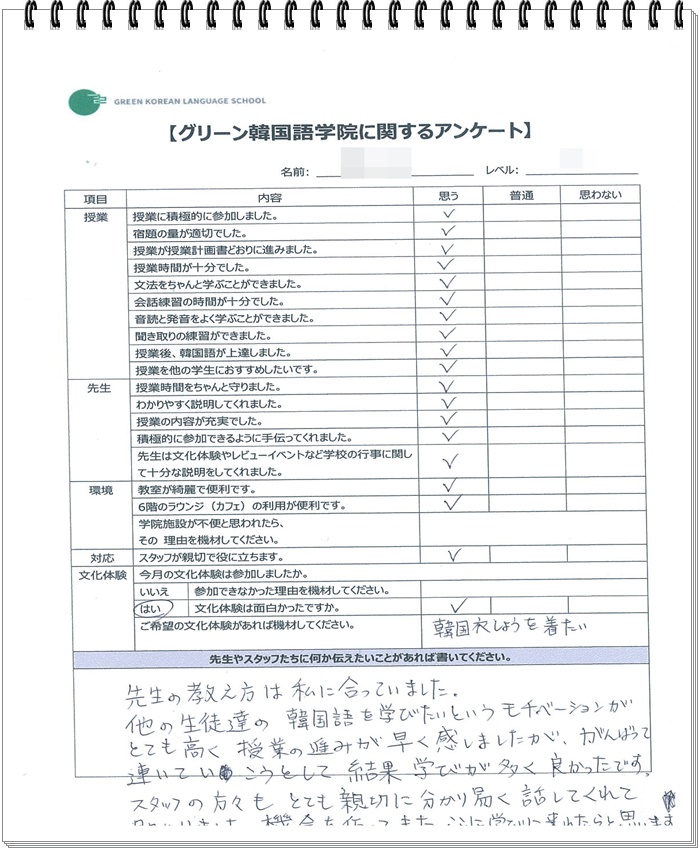 GREEN KOREAN LANGUAGE SCHOOL
【グリーン韓国語学院に関するアンケート】
名前: レベル:
項目 内容 思う 普通 思わない
授業 授業に積極的に参加しました。 ✓
宿題の量が適切でした。 ✓
授業が授業計画書どおりに進みました。 ✓
授業時間が十分でした。 ✓
文法をちゃんと学ぶことができました。 ✓
会話練習の時間が十分でした。 ✓
音読と発音をよく学ぶことができました。 ✓
聞き取りの練習ができました。 ✓
授業後、韓国語が上達しました。 ✓
授業を他の学生におすすめしたいです。 ✓
先生 授業時間をちゃんと守りました。 ✓
わかりやすく説明してくれました。 ✓
授業の内容が充実でした。 ✓
積極的に参加できるように手伝ってくれました。 ✓
先生は文化体験やレビューイベントなど学校の行事に関し
て十分な説明をしてくれました。 ✓
環境 教室が綺麗で便利です。 ✓
6階のラウンジ（カフェ）の利用が便利です。 ✓
学院施設が不便と思われたら、
その 理由を機材してください。
対応 スタッフが親切で役に立ちます。 ✓
文化体験 今月の文化体験は参加しましたか。
いいえ 参加できなかった理由を機材してください。
はい 文化体験は面白かったですか。 ✓
ご希望の文化体験があれば機材してください。 韓国衣しょうを着たい
先生やスタッフたちに何か伝えたいことがあれば書いてください。
先生の教え方は私に合っていました。
他の生徒達の 韓国語を学びたいというモチベーションが
とても高く 授業の進みが早く感しましたが、がんばって
連いてい こうとして 結果 学びが多く良かったです。
スタッフの方々も とても親切に分かり易く話してくれて